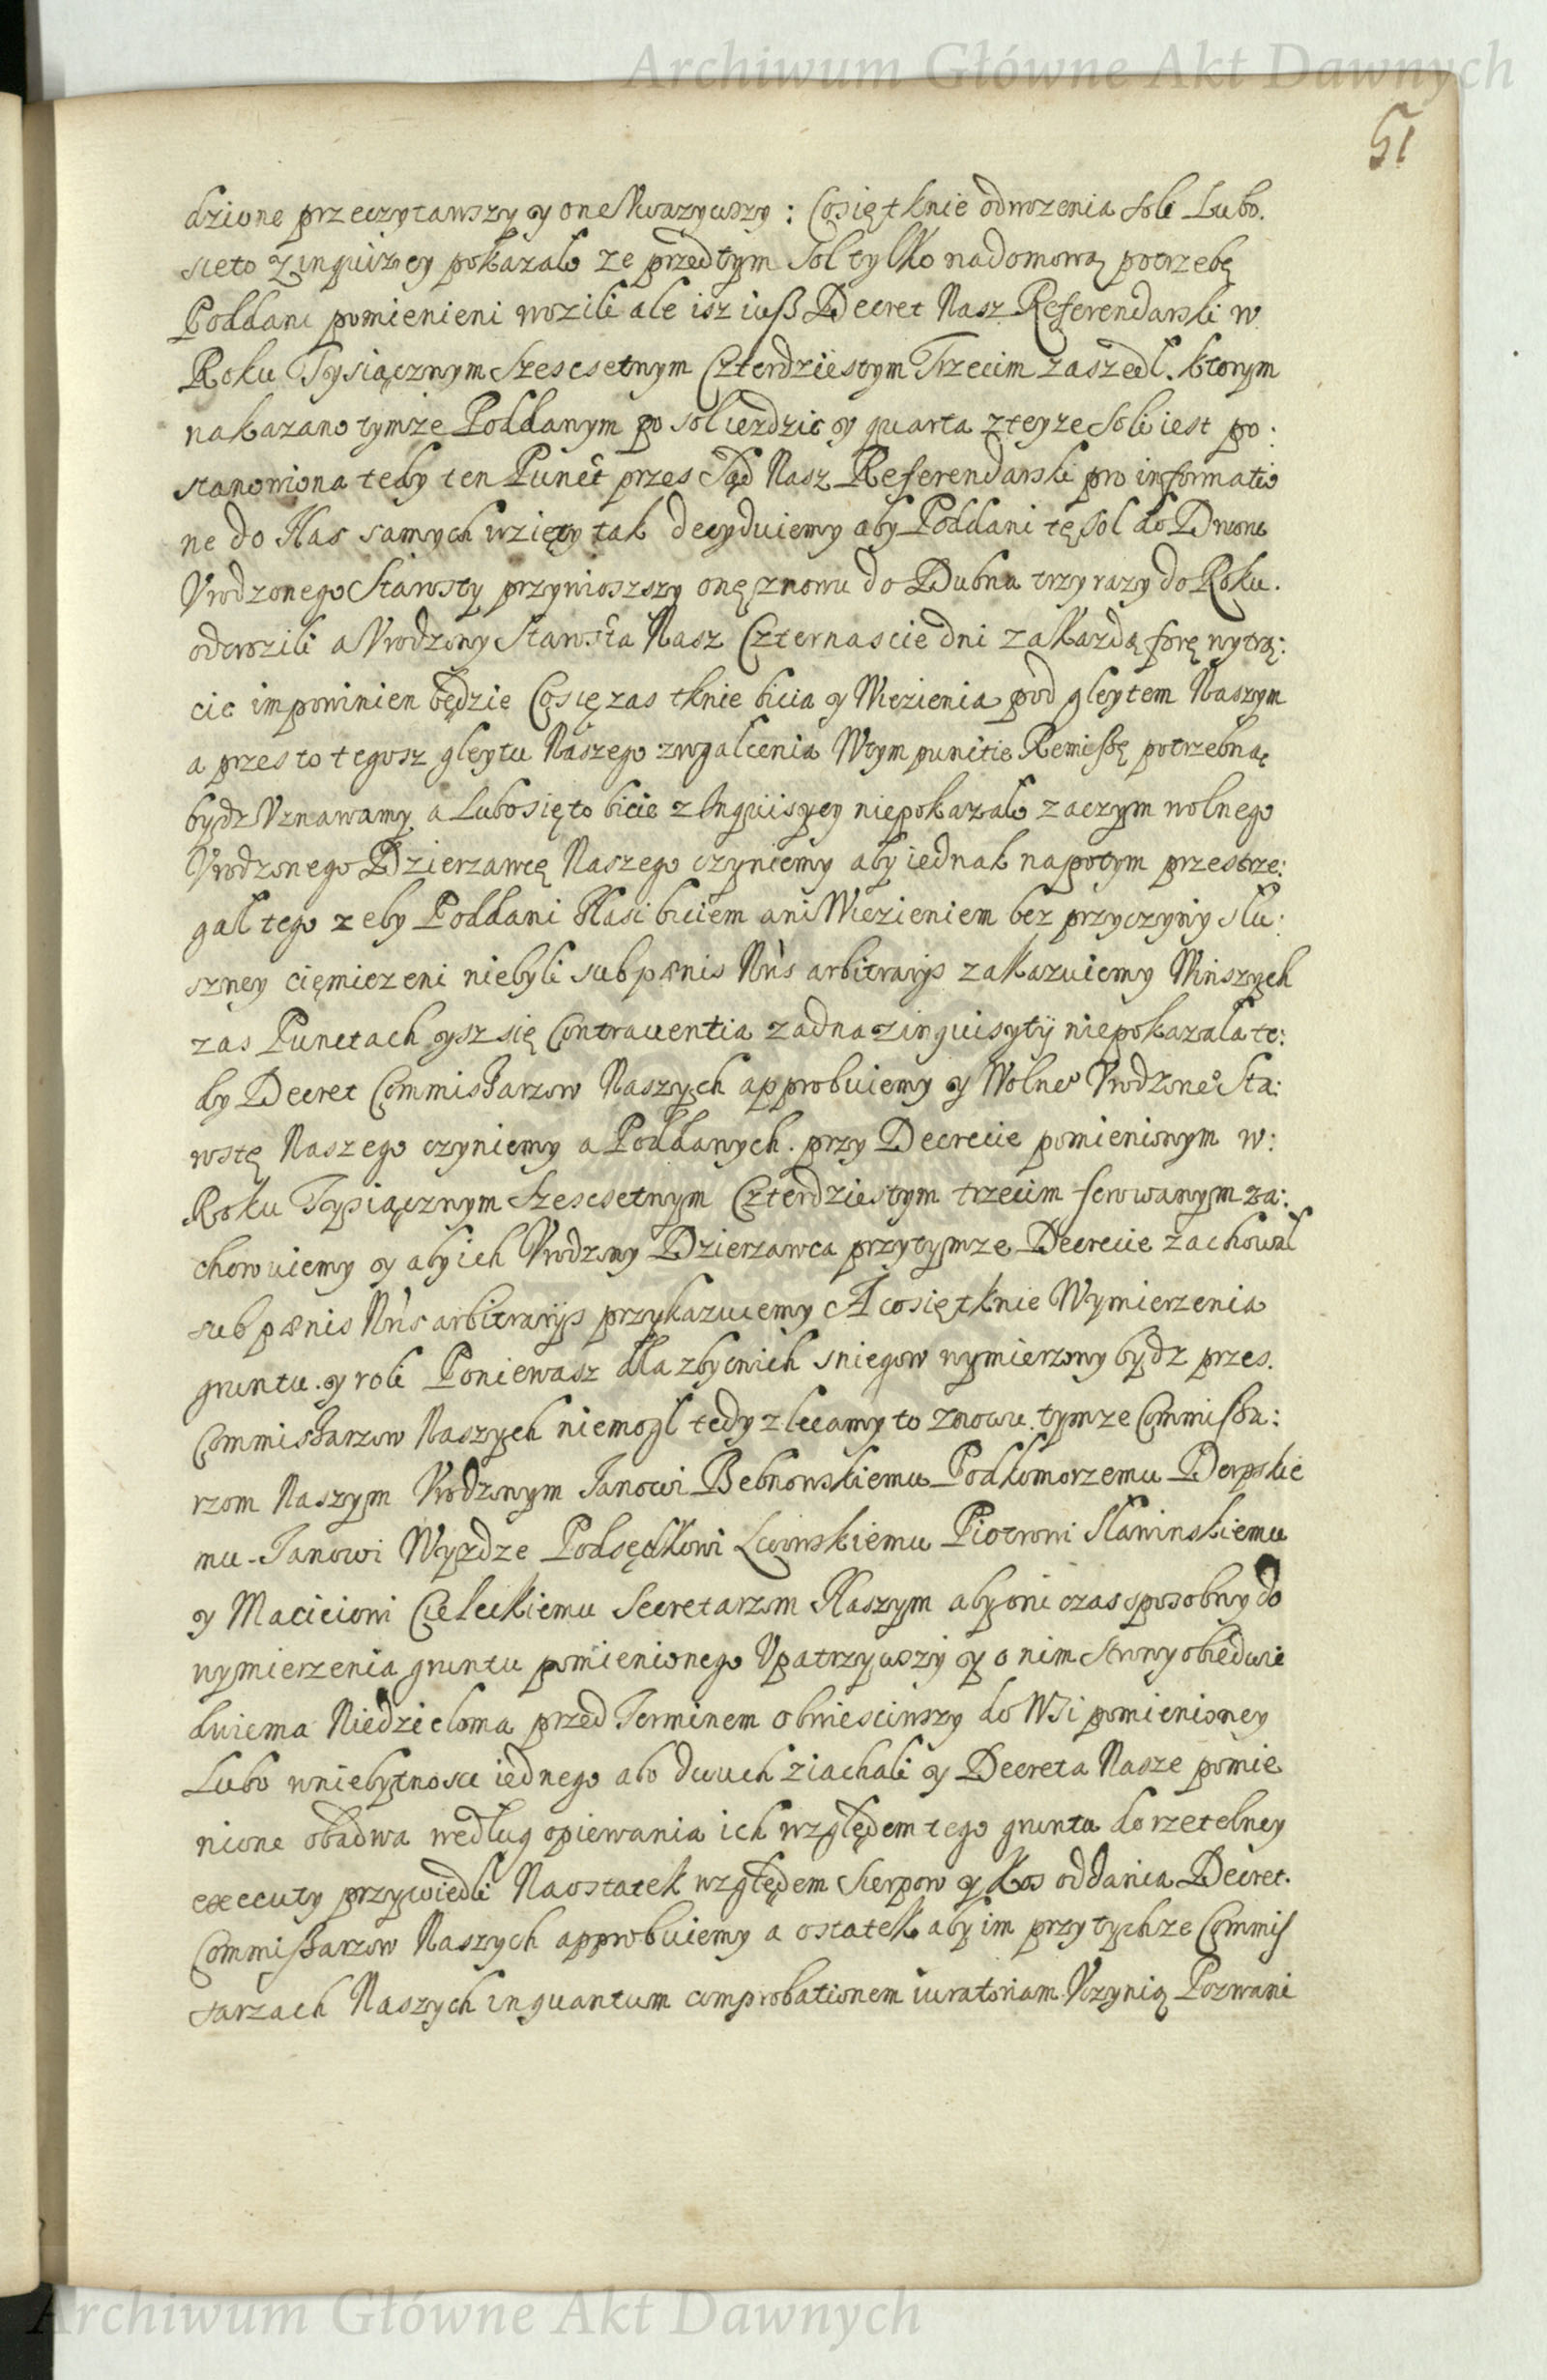 Archiwum Główne Akt Dawnych
51
dzione przeczytawszy y one Uwazywszy : Co się tknie odwozenia soli Lubo.
sie to z inquizycy pokazalo ze przedtym Sol tylko na domową potrzebę
Poddani pomienieni wozili ale isz iusz Decret Nasz Referendarski w
Roku Tysiącznym Szescsetnym Czterdziestym Trzecim zaszedl. ktorym
nakazano tymze Poddanym po sol iezdzic y quarta z teyze Soli iest po:
stanowiona tedy ten Punct przes Sąd Nasz Referendarski pro informatio
ne do Nas samych wzięty tak decyduiemy aby Poddani tę sol do Dworu
Urodzonego Starosty przywioszszy onę znowu do Dubna trzy razy do Roku.
odwozili a Urodzony Starosta Nasz Czternascie dni za kazdą forę wytrą:
cic im powinien będzie Co się zas tknie bicia y Wiezienia pod gleytem Naszym
a przes to tegosz gleytu Naszego zwgalcenia W tym punctie Remissę potrzebną
bydz Uznawamy a Lubo się to bicie z Inquisycy niepokazalo zaczym wolnego
Urodzonego Dzierzawcę Naszego czyniemy aby iednak napotym przestrze:
gal tego zeby Poddani Nasi biciem ani Wiezieniem bez przyczyny slu:
szney ciemiezeni niebyli sub pœnis Nr̃is arbitrarijs zakazuiemy W inszych
zas Punctach ysz się Contraventia zadna z inquisytij niepokazala te:
dy Decret Commissarzow Naszych approbuiemy y Wolneº Urodzoneº Sta:
rostę Naszego czyniemy a Poddanych. przy Decrecie pomienionym w:
Roku Tysiącznym Szescsetnym Czterdziestym trzecim ferowanym za:
chowuiemy y aby ich Urodzony Dzierzawca przy tymze Decrecie zachowal
sub pœnis Nr̃is arbitrarijs przykazuiemy A co się tknie Wymierzenia
gruntu. y roli Poniewasz dla zbytnich sniegow wymierzony bydz przes.
Commissarzow Naszych niemogl tedy zlecamy to znowu. tymze Commissa:
rzom Naszym Urodzonym Janowi Bebnowskiemu Podkomorzemu Derpskie
mu - Janowi Wyzdze Podsędkowi Lwowskiemu Piotrowi Slawinskiemu
y Macieiowi Cieleckiemu Secretarzom Naszym aby oni czas sposobny do
wymierzenia gruntu pomienionego Upatrzywszy y o nim strony obiedwie
dwiema Niedzieloma przed Terminem obwiesciwszy do Wsi pomienioney
Lubo w niebytnosci iednego abo dwuch ziachali y Decreta Nasze pomie
nione obadwa według opiewania ich względem tego gruntu do rzetelney
executy przywiedli Na ostatek względem Sierpow y kos oddania Decret.
Commissarzow Naszych approbuiemy a ostatek aby im przy tychze Commis
sarzach Naszych inquantum comprobationem iuratoriam Uczynią Pozwani
Archiwum Główne Akt Dawnych